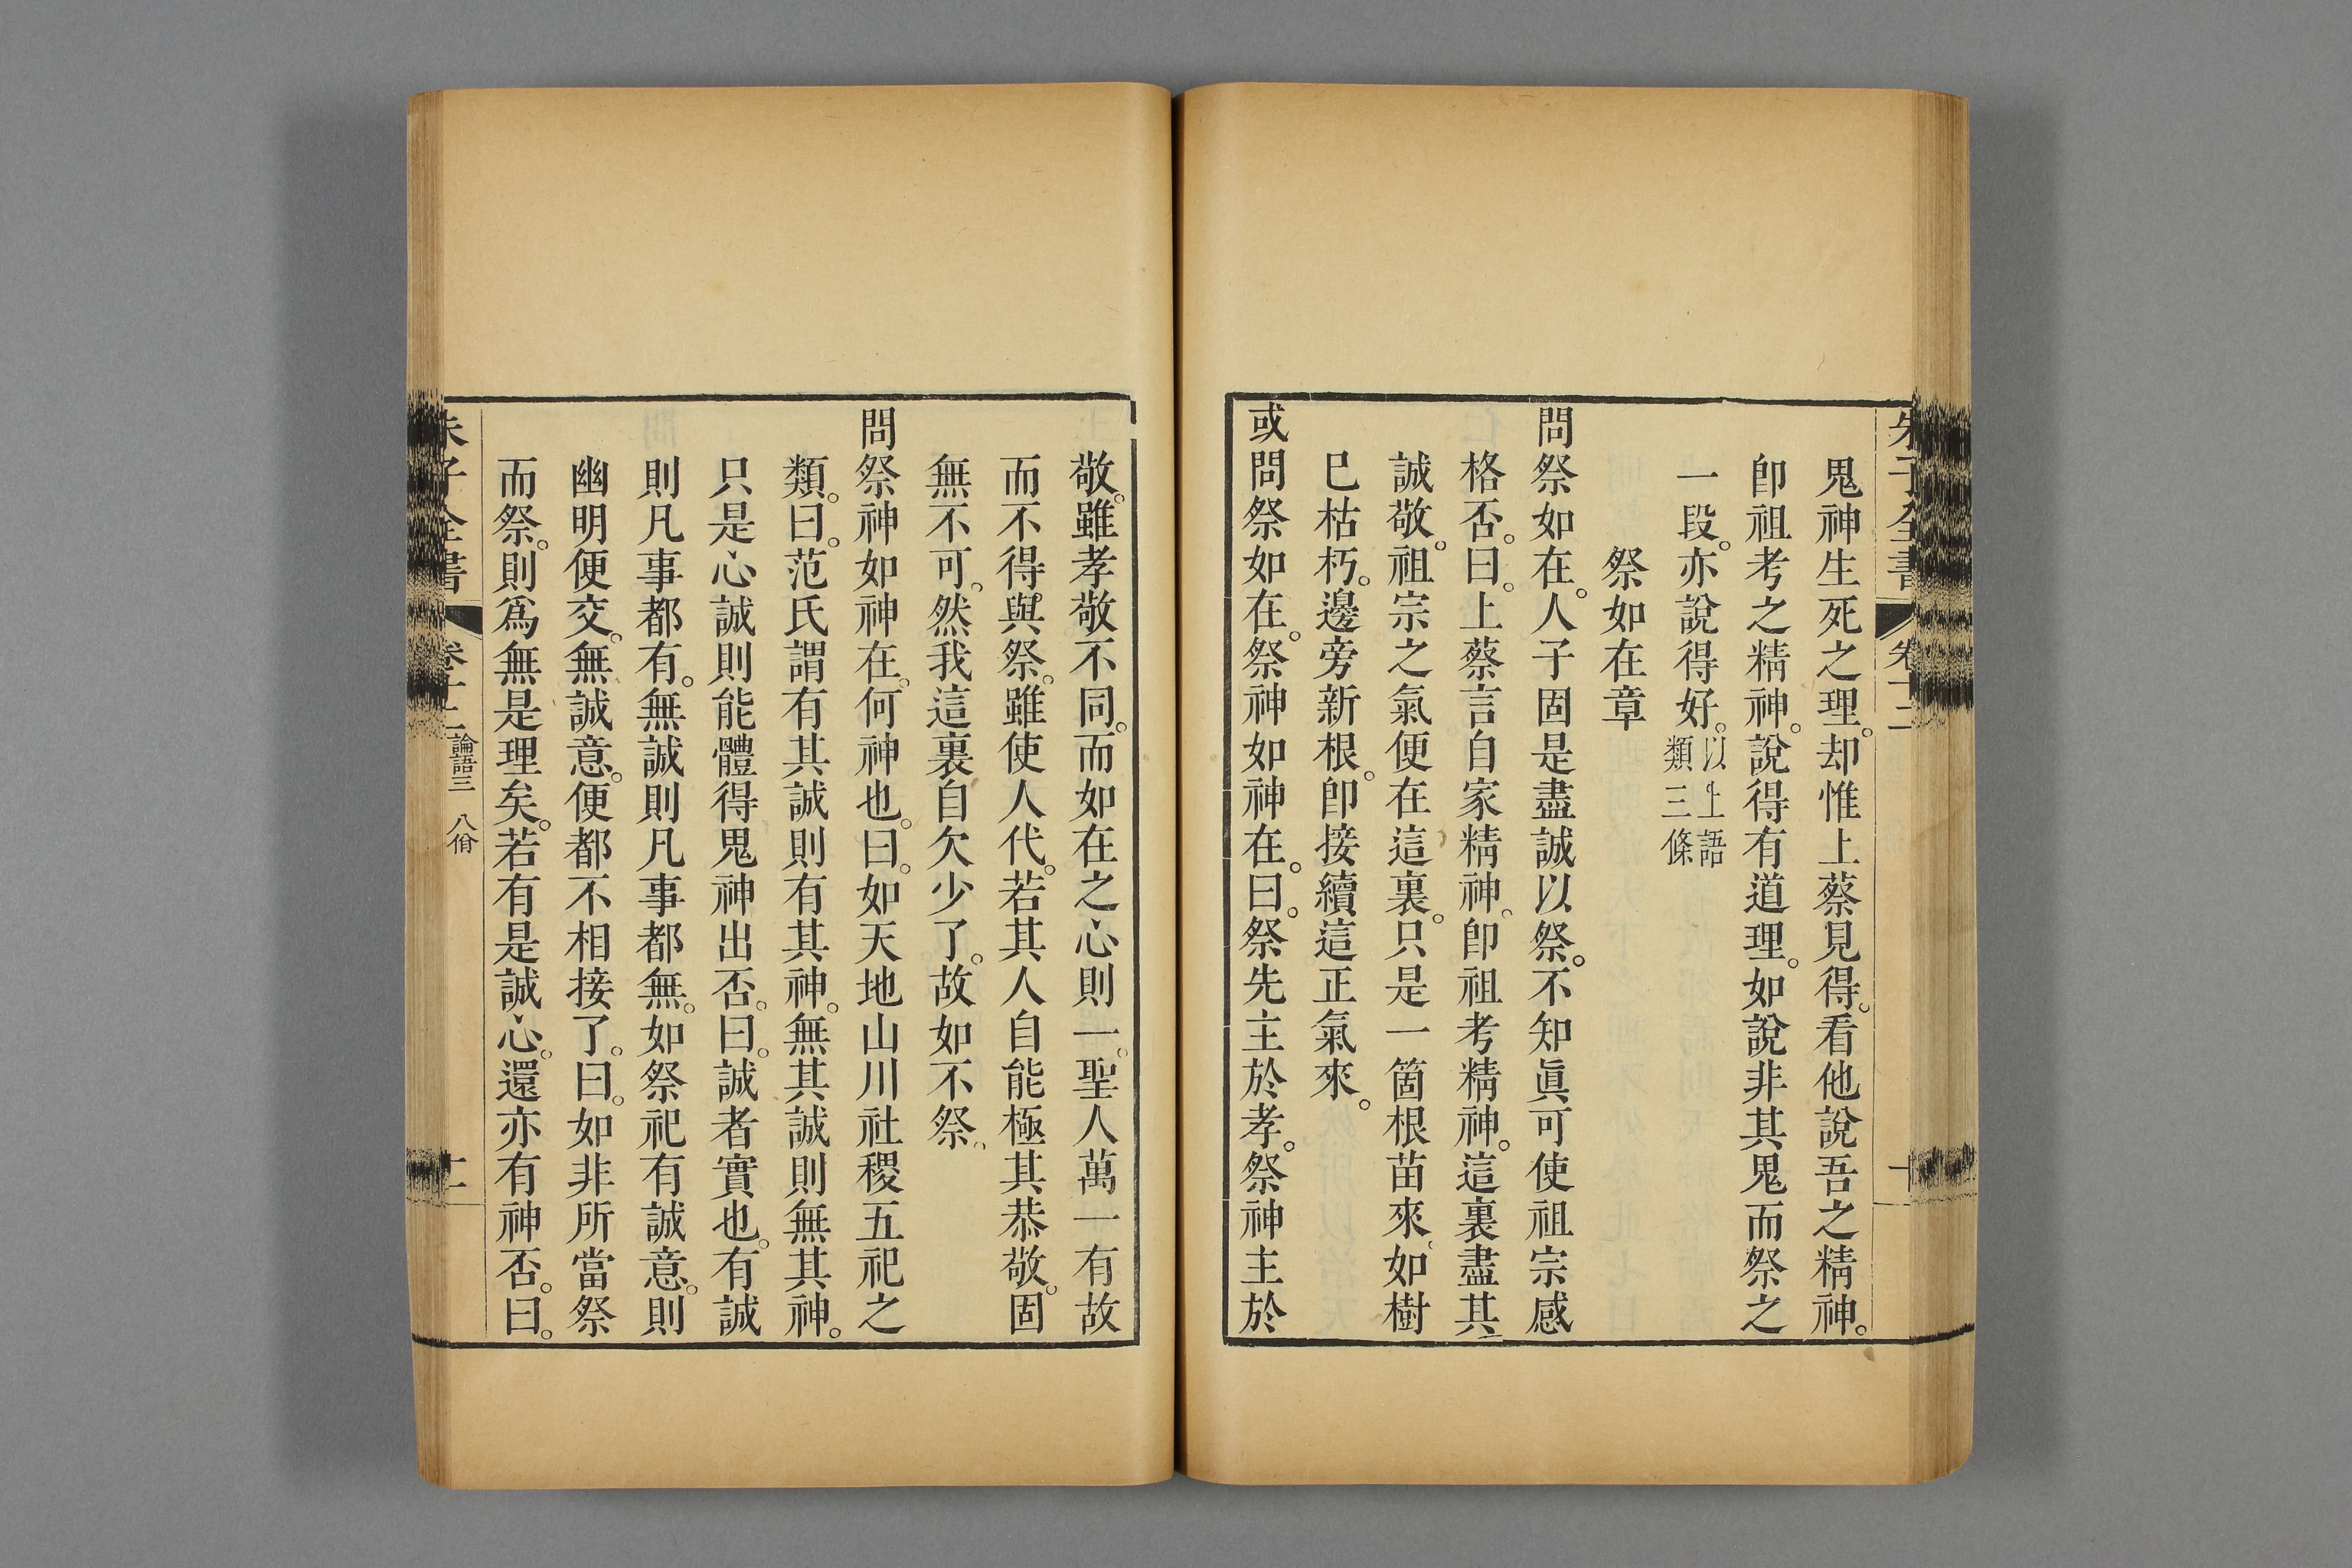 鬼神生死之理。却惟上蔡見得。看他說吾之精神。
卽祖考之精神。說得有道理。如說非其鬼而祭之
一段。亦說得好。以上語
類三條
祭如在章
問祭如在。人子固是盡誠以祭。不知眞可使祖宗感
格否。曰。上蔡言自家精神。卽祖考精神。這裏盡其
誠敬。祖宗之氣便在這裏。只是一箇根苗來。如樹
已枯朽。邊旁新根。卽接續這正氣來。
或問祭如在。祭神如神在。曰。祭先主於孝。祭神主於
敬。雖孝敬不同。而如在之心則一。聖人萬一有故
而不得與祭。雖使人代。若其人自能極其恭敬。固
無不可。然我這裏自欠少了。故如不祭。
問祭神如神在。何神也。曰。如天地山川社稷五祀之
類。曰。范氏謂有其誠則有其神。無其誠則無其神。
只是心誠則能體得鬼神出否。曰。誠者實也。有誠
則凡事都有。無誠則凡事都無。如祭祀有誠意。則
幽明便交。無誠意。便都不相接了。曰。如非所當祭
而祭。則爲無是理矣。若有是誠心。還亦有神否。曰。
朱子全書 卷十二 論語三 八佾 十一